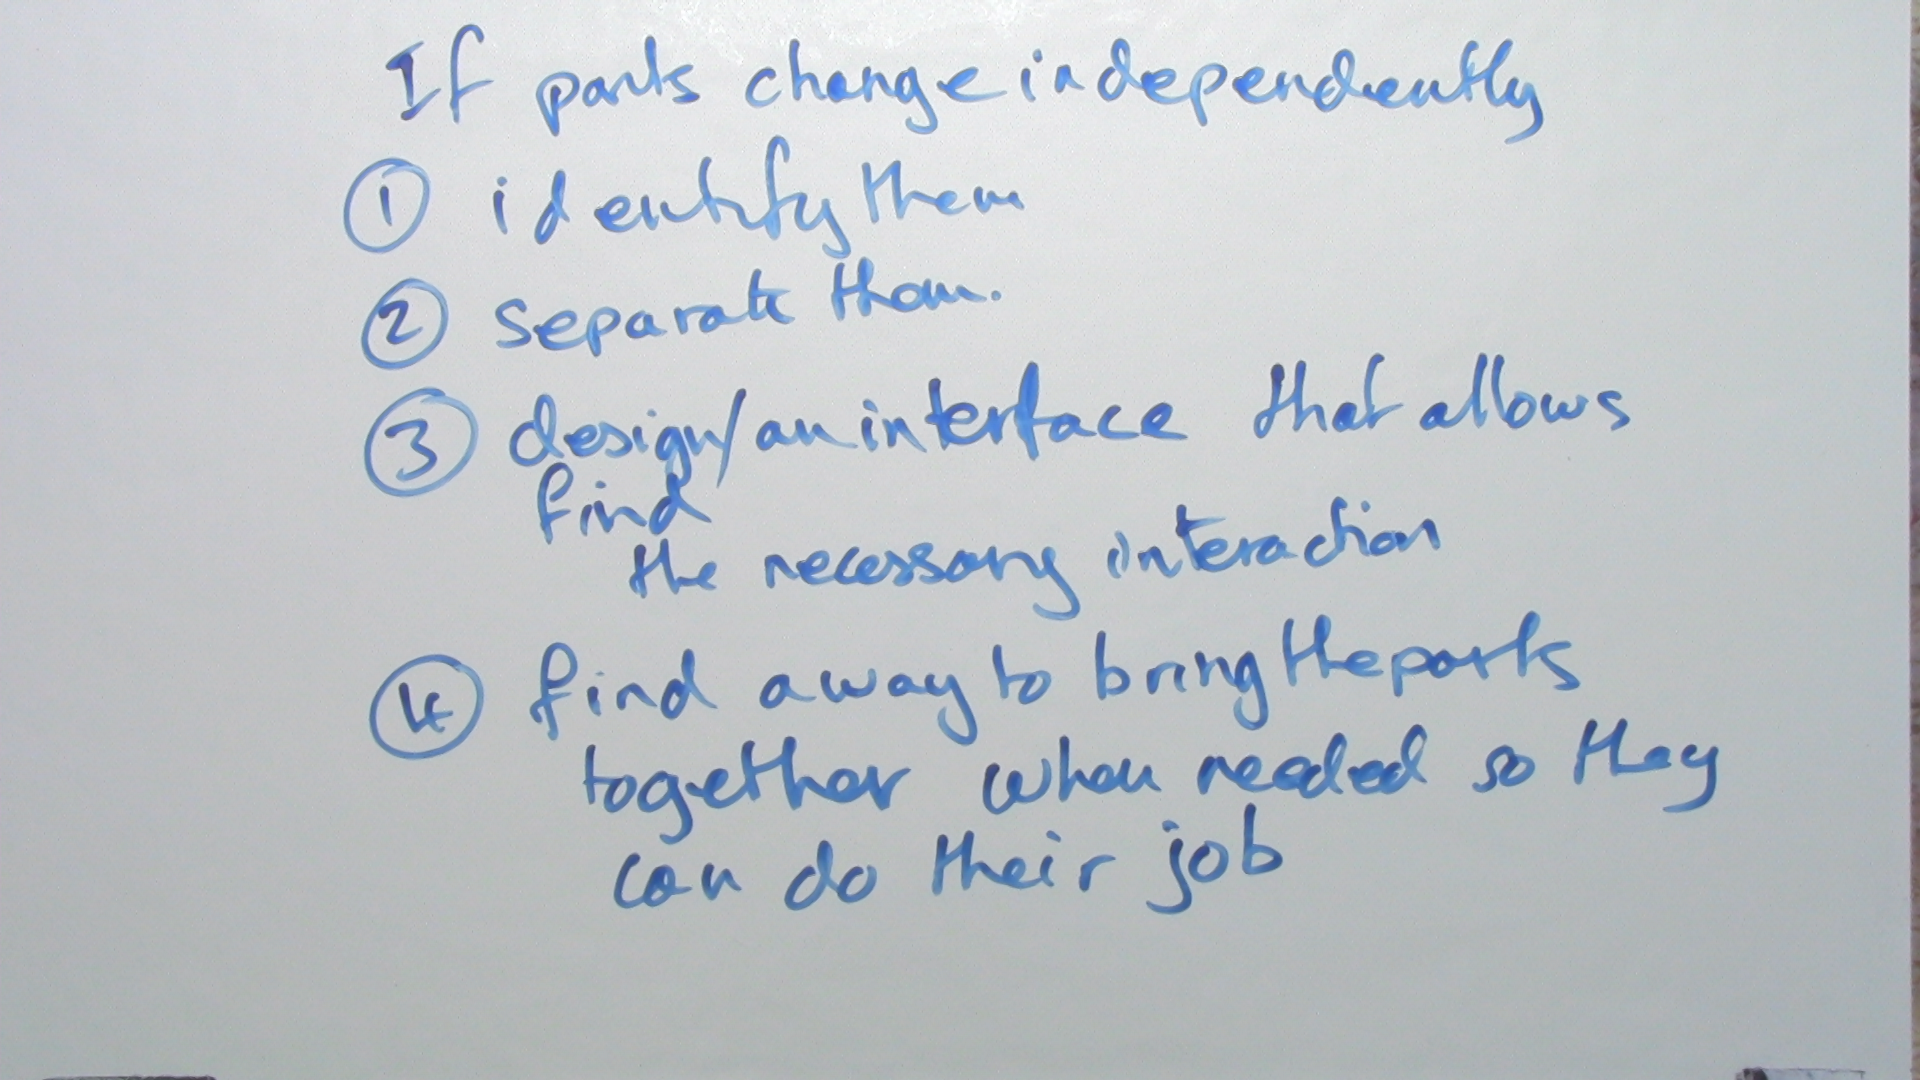 If parts change independently
① identify them
② separate them.
③ design/an interface that allows
find
the necessary interaction
④ find a way to bring the parts
together when needed so they
can do their job